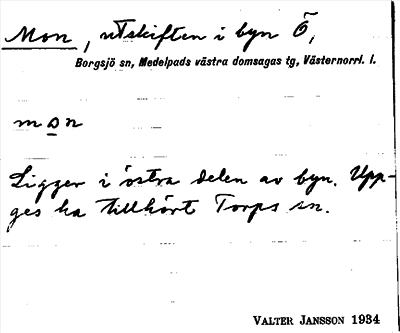 Mon, utskiften i byn Ö,
Borgsjö sn, Medelpads västra domsagas tg, Västernorrl. l.
mɷn
Ligger i östra delen av byn. Upp-
ges ha tillhört Torps sn.
VALTER JANSSON 1934